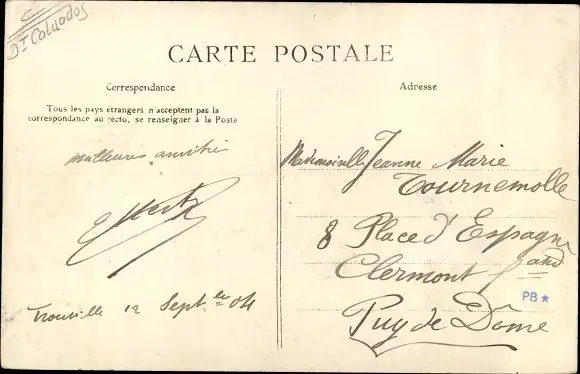 Dt Calvados
CARTE POSTALE
Correspondance
Tous les pays étrangers n'acceptent pas la
correspondance au recto, se renseigner à la Poste
meilleures amitiés
Trouville 12 Septbre 04
Adresse
Mademoiselle Jeanne Marie
Tournemolle
8 Place d'Espagne
Clermont fand
PB★
Puy de Dôme